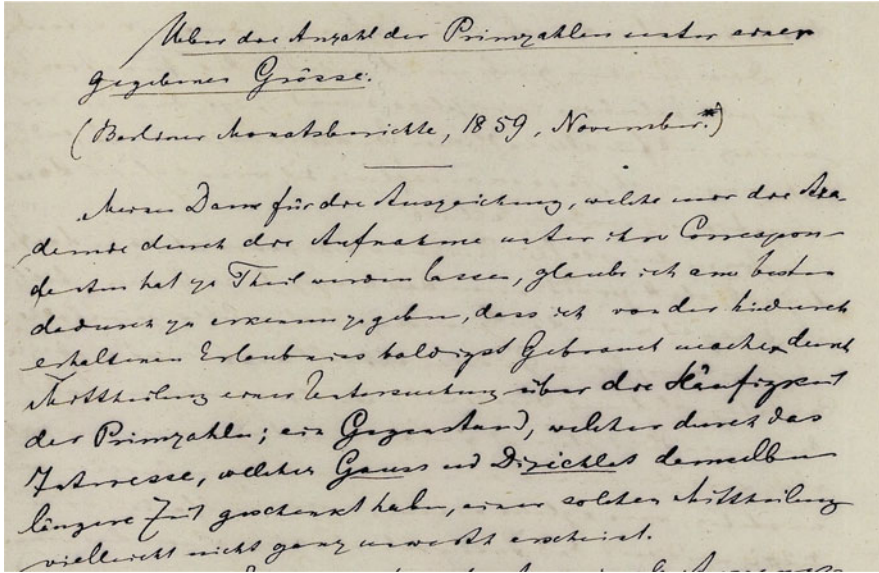 Ueber die Anzahl der Primzahlen unter einer
gegebenen Grösse.
(Berliner Monatsberichte, 1859, November.*)
Meinen Dank für die Auszeichnung, welche mir die Aka-
demie durch die Aufnahme unter ihre Correspon-
denten hat zu Theil werden lassen, glaube ich am besten
dadurch zu erkennen zu geben, dass ich von der hiedurch
erhaltenen Erlaubniss baldigst Gebrauch mache durch
Mittheilung einer Untersuchung über die Häufigkeit
der Primzahlen; ein Gegenstand, welcher durch das
Interesse, welches Gauss und Dirichlet demselben
längere Zeit geschenkt haben, einer solchen Mittheilung
vielleicht nicht ganz unwerth erscheint.